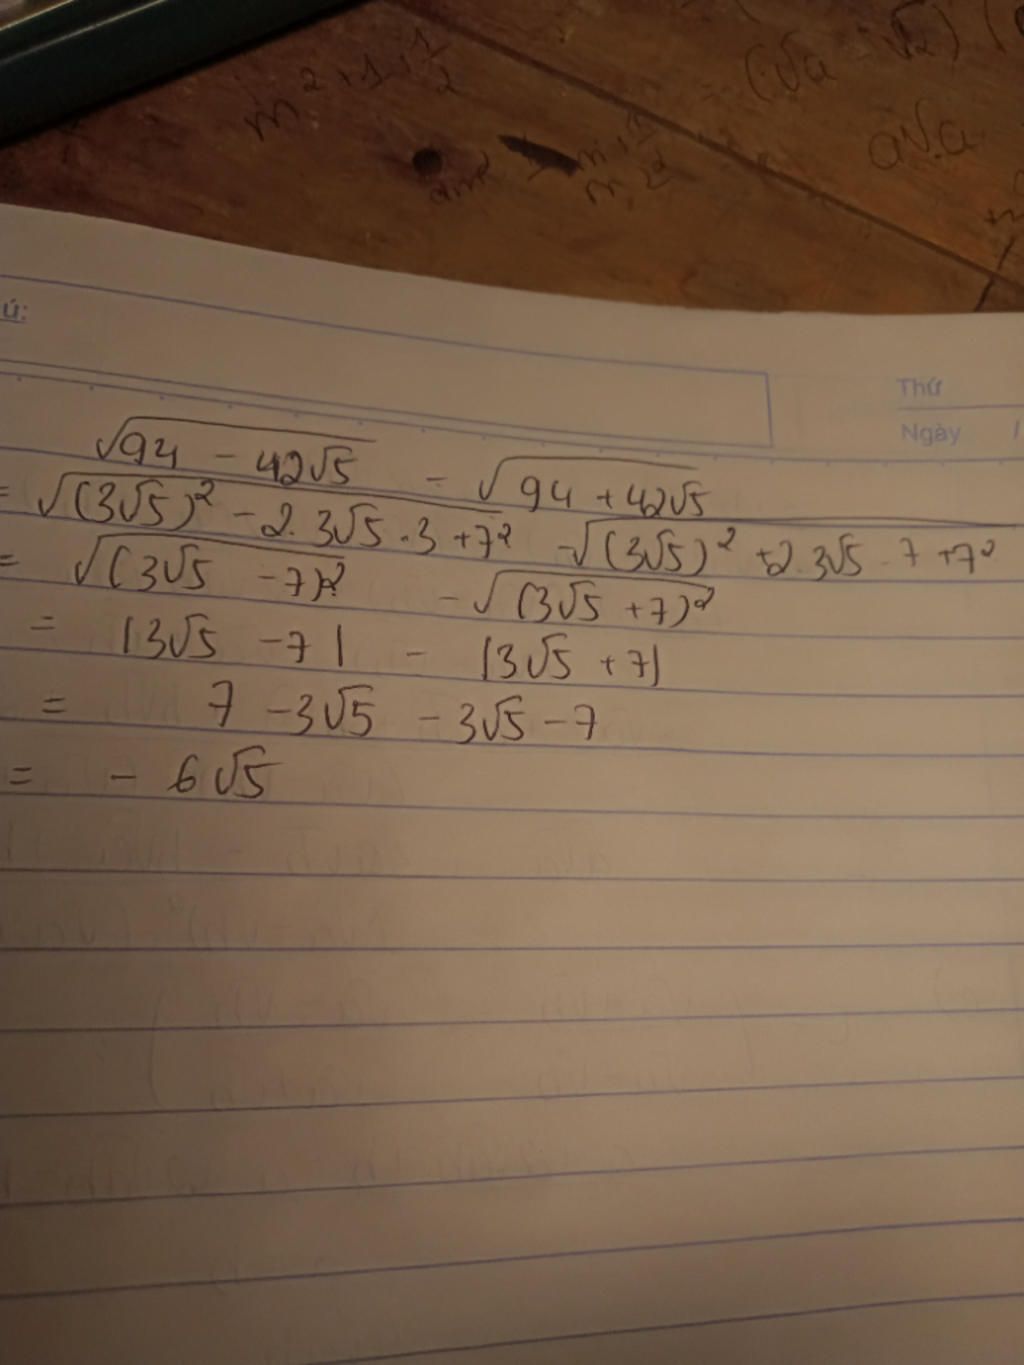 m² + 1 + 1/2
(√a - √2)
a√a
ú:
Thứ
Ngày /
√94 - 42√5 - √94 + 42√5
= √(3√5)² - 2.3√5.3 + 7² - √(3√5)² + 2.3√5.7 + 7²
= √(3√5 - 7)² - √(3√5 + 7)²
= |3√5 - 7| - |3√5 + 7|
= 7 - 3√5 - 3√5 - 7
= - 6√5